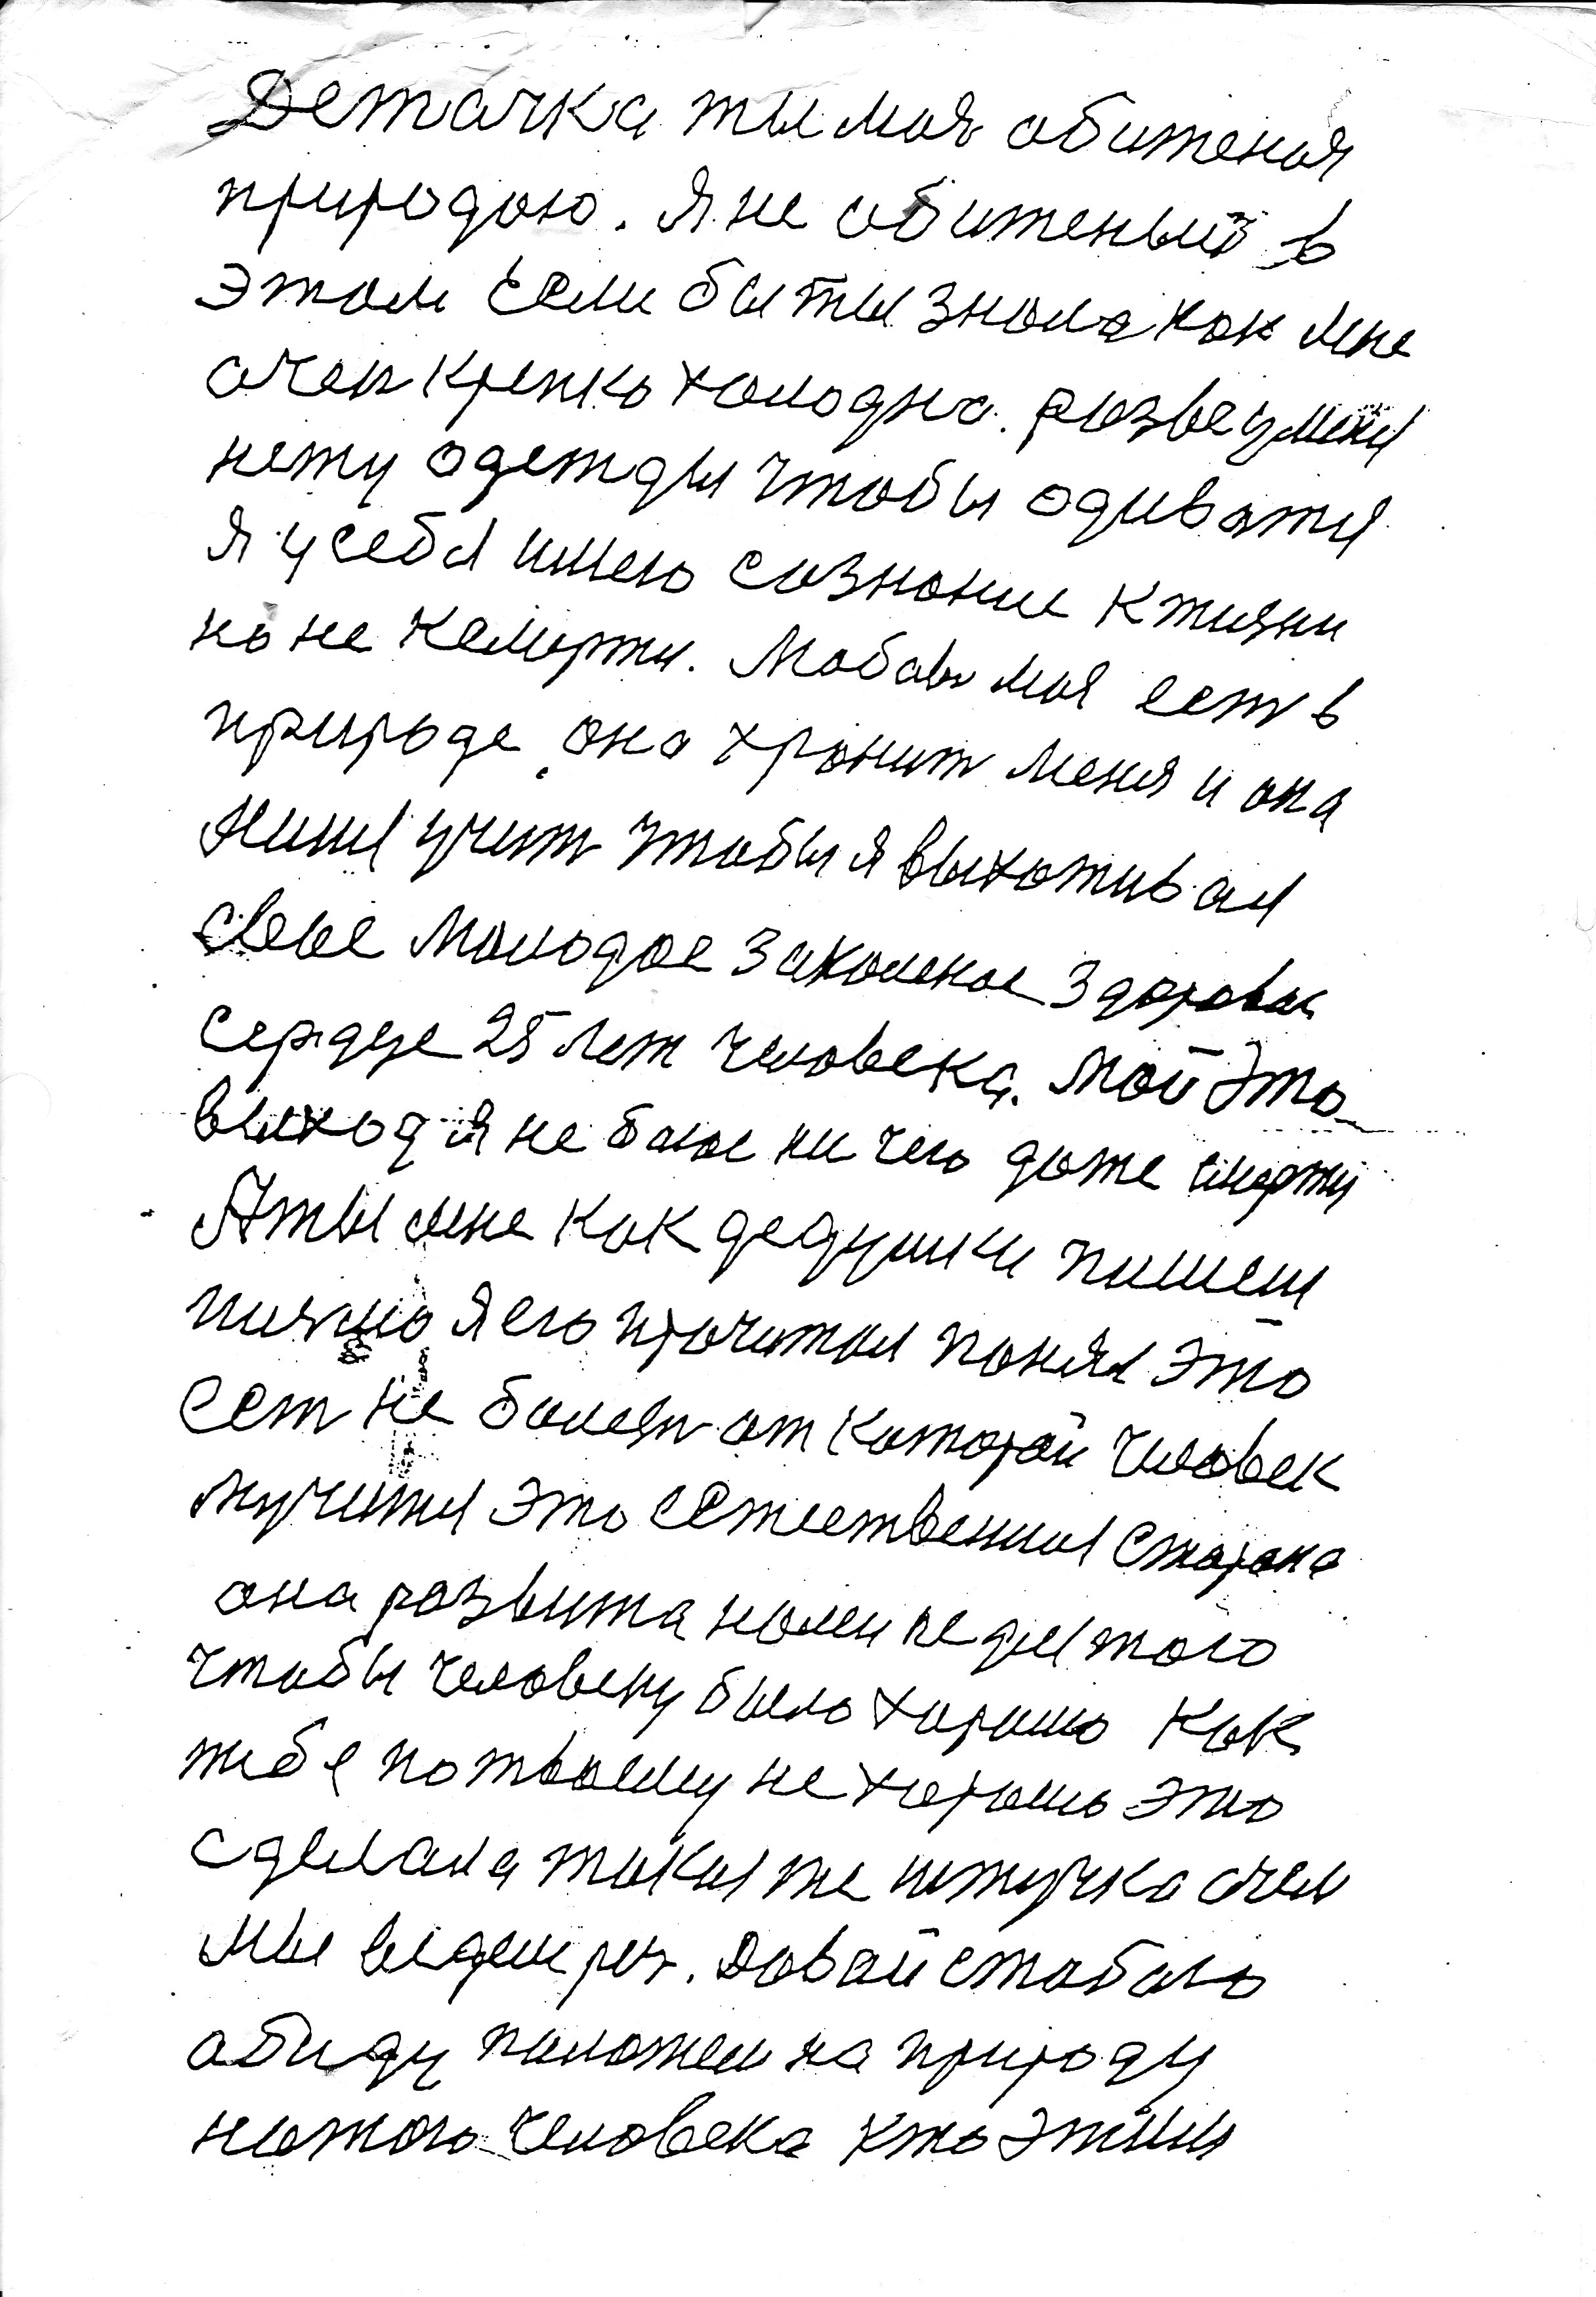 Детачка ты моя обиженая
природою. Я не обиженый в
этом Если бы ты знала как мне
очен крепко холодно. разве у меня
нету одежды чтобы одиватся
Я у себя имею сознание к жизни
но не к смерти. Любовь моя есть в
природе она хронит меня и она
меня учит чтобы я выхаживал
свое молодое закаленое здоровае
сердце 25 лет человека. Мой это
выход я не боюс ни чего даже смерти
А ты мне как дедушки пишеш
писмо я его прочитал понял это
ест не болезн от каторай человек
мучится это естественная старана
она развита нами не для того
чтобы человеку было харашо как
тебе по твоему не харашо это
сделана такая же штучка о чем
мы ведем реч. Довай с табою
абиду положем на природу
на того человека кто этим